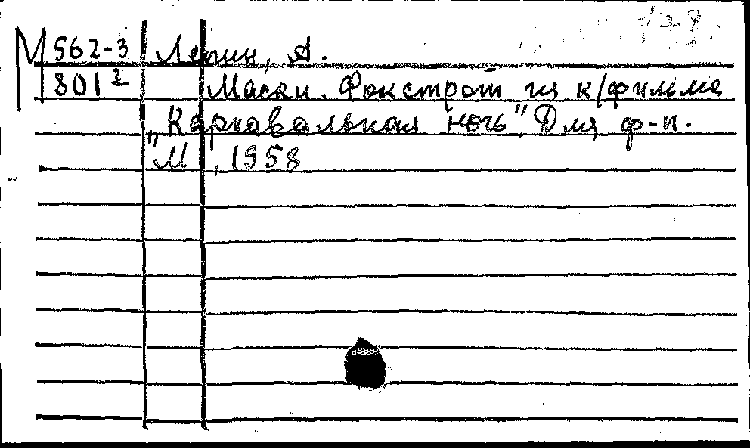 М 562-3 Лепин, А.
801² Маски. Фокстрот из к/фильма
„Карнавальная ночь". Для ф-п.
М , 1958